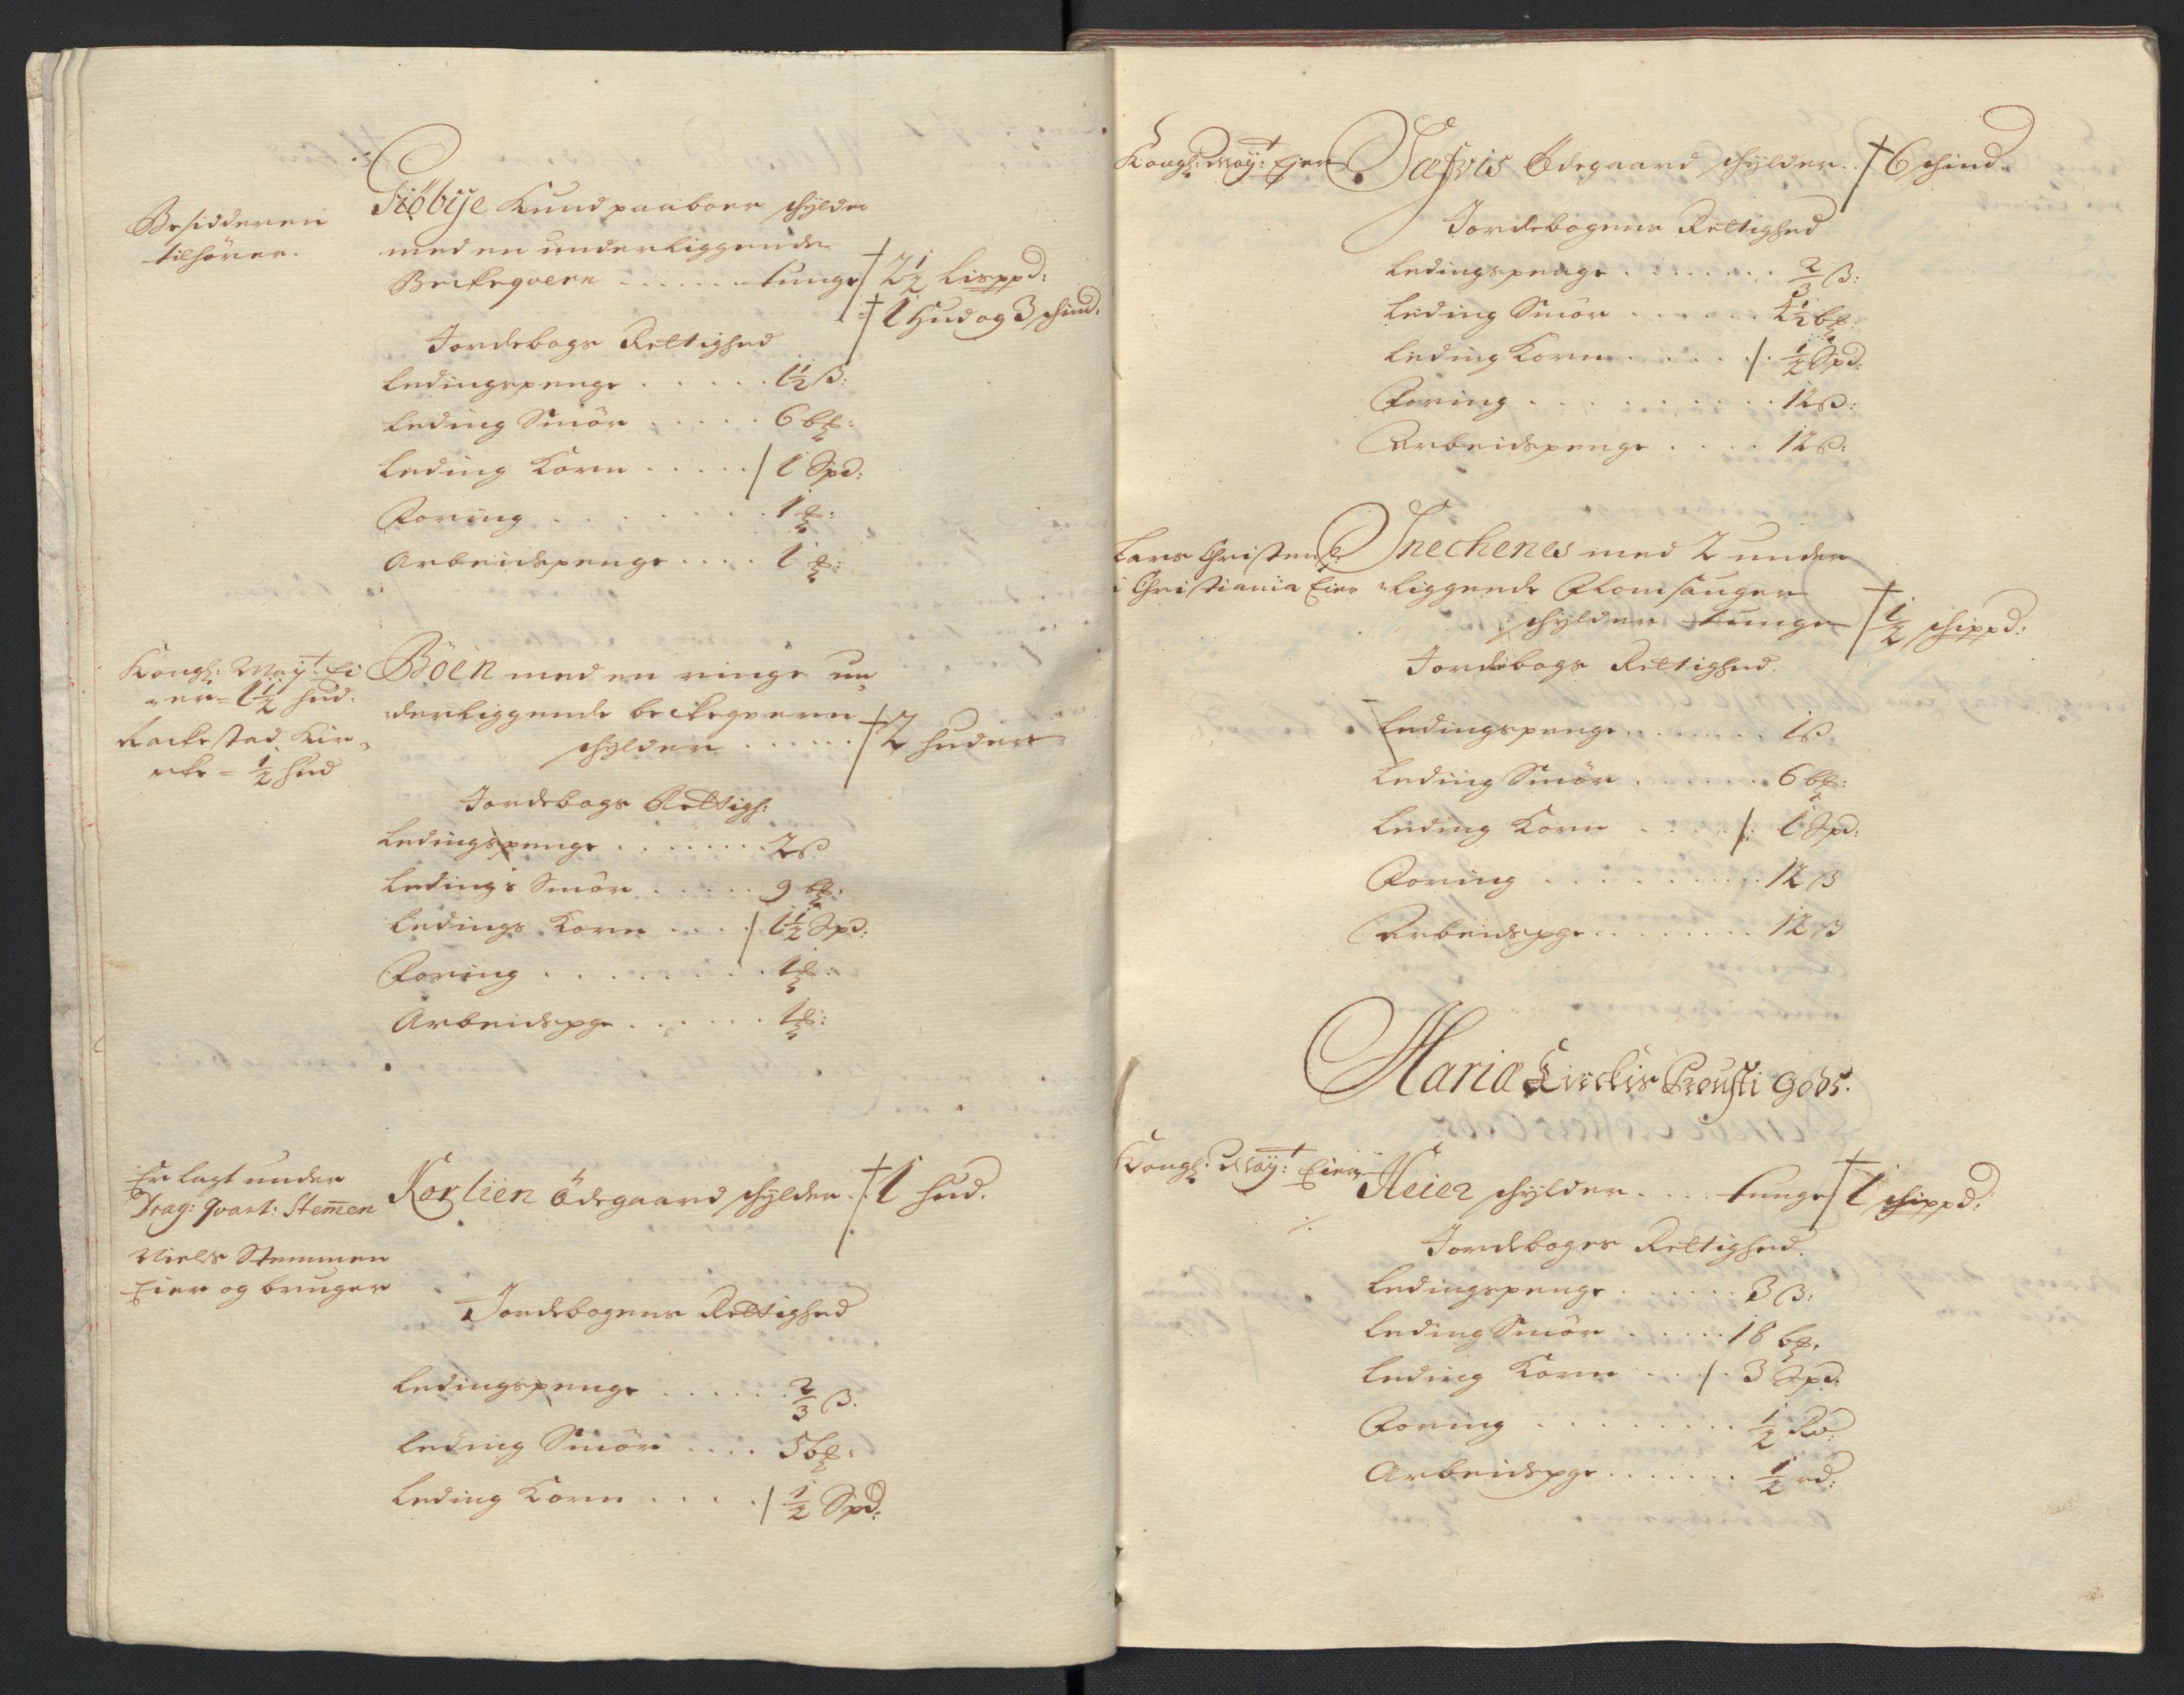 Besidderen
tilhörer.
Siöbÿe Knud paaboer schÿlder
med en underliggende
Beckeqvern ...... tunge 2½ Lisppd:
1 Hud og 3 schind.
Jordebogs Rettighed
Ledingspenge ..... 1½ ß:
Leding Smör ..... 6 b℔:
Leding Korn ..... 1 Spd:
Foring ....... 1 ℔:
Arbeidspenge .... 1 ℔:
Kongl: Maÿt: Ei
er = 1½ hud.
Rackestad Kir
cke = ½ hud
Böen med en ringe un
derliggende beckeqvern
schÿlder ...... 2 huder
Jordebogs Rettigh:
Ledingspenge ........ 2 ß
Ledings Smör ..... 9 b℔:
Ledings Korn .... 1½ Spd:
Foring ........ 1 ℔:
Arbeidspge ...... 1 ℔:
Er lagt under
Drag: Qvart: Stemen
Niels Stemmen
Eier og bruger
Korlien ödegaard schÿlder .. 1 hud.
Jordebogens Rettighed
Ledingspenge ...... ⅔ ß.
Leding Smör .... 5 b℔:
Leding Korn ..... ½ Spd:
Kongl: Maÿt: Ejer
Sæfris Ödegaard schÿlder .. 6 schind.
Jordebogens Rettighed
Ledingspenge ........ ⅔ ß:
Leding Smör ...... 4½ b℔:
Leding Korn ...... ½ Spd:
Foring .......... 12 ß:
Arbeidspenge .... 12 ß:
Lars Christens:
i Christiania Eier
Snechenes med 2 under
liggende Flomsauger
schÿlder tunge ½ schippd:
Jordebogs Rettighed.
Ledingspenge ....... 1 ß
Leding Smör ...... 6 b℔:
Leding Korn ..... 1 Spd:
Foring ......... 12 ß
Arbeidspge ........ 12 ß
Mariæ Kirckis Prousti Gods.
Kongl: Maÿt: Eier
Heier schÿlder .... tunge 1 schippd:
Jordeboges Rettighed.
Ledingspenge ...... 3 ß:
Leding Smör ..... 18 b℔.
Leding Korn .... 3 Spd:
Foring ......... ½ Rd:
Arbeidspge ....... ½ rd: